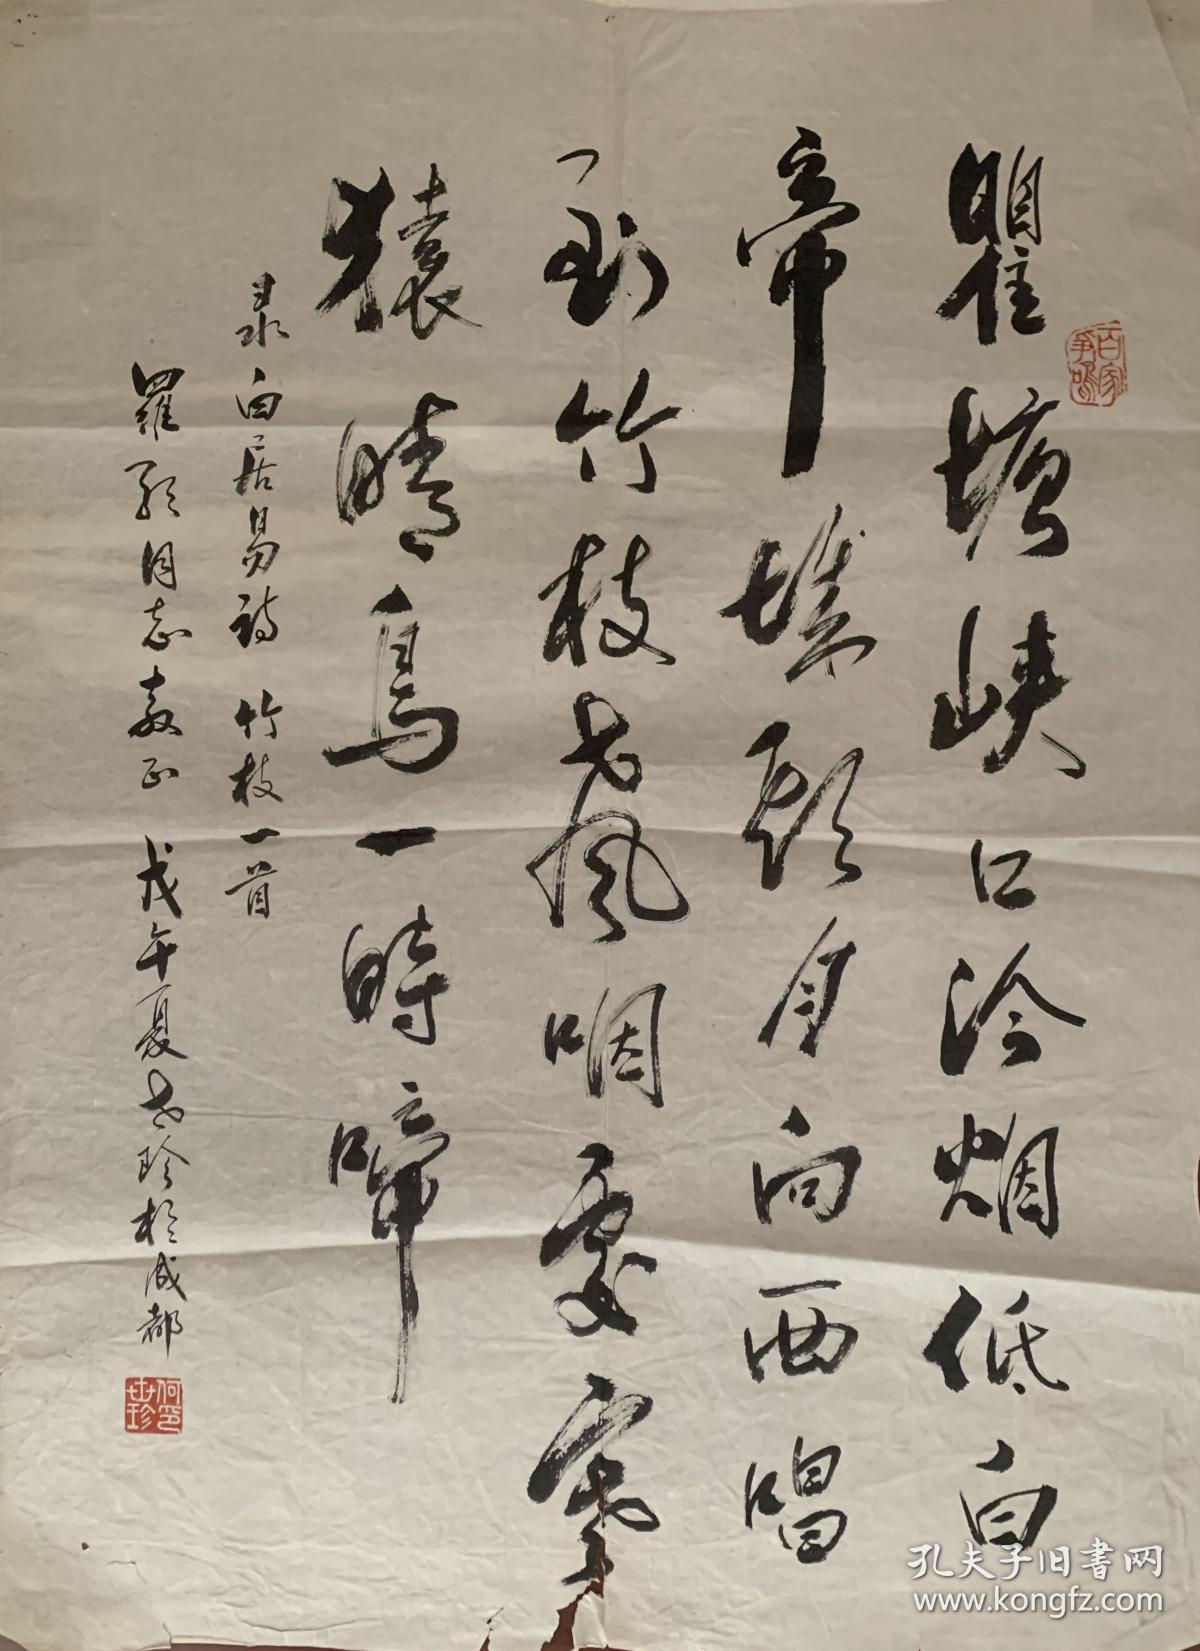 瞿塘峽口冷烟低白
帝城頭月向西唱
到竹枝聲咽處寒
猿晴鳥一時啼
录白居易詩 竹枝一首
羅同志教正 戊午夏世珍於成都
百家爭鳴
何印世珍
孔夫子旧書网
www.kongfz.com